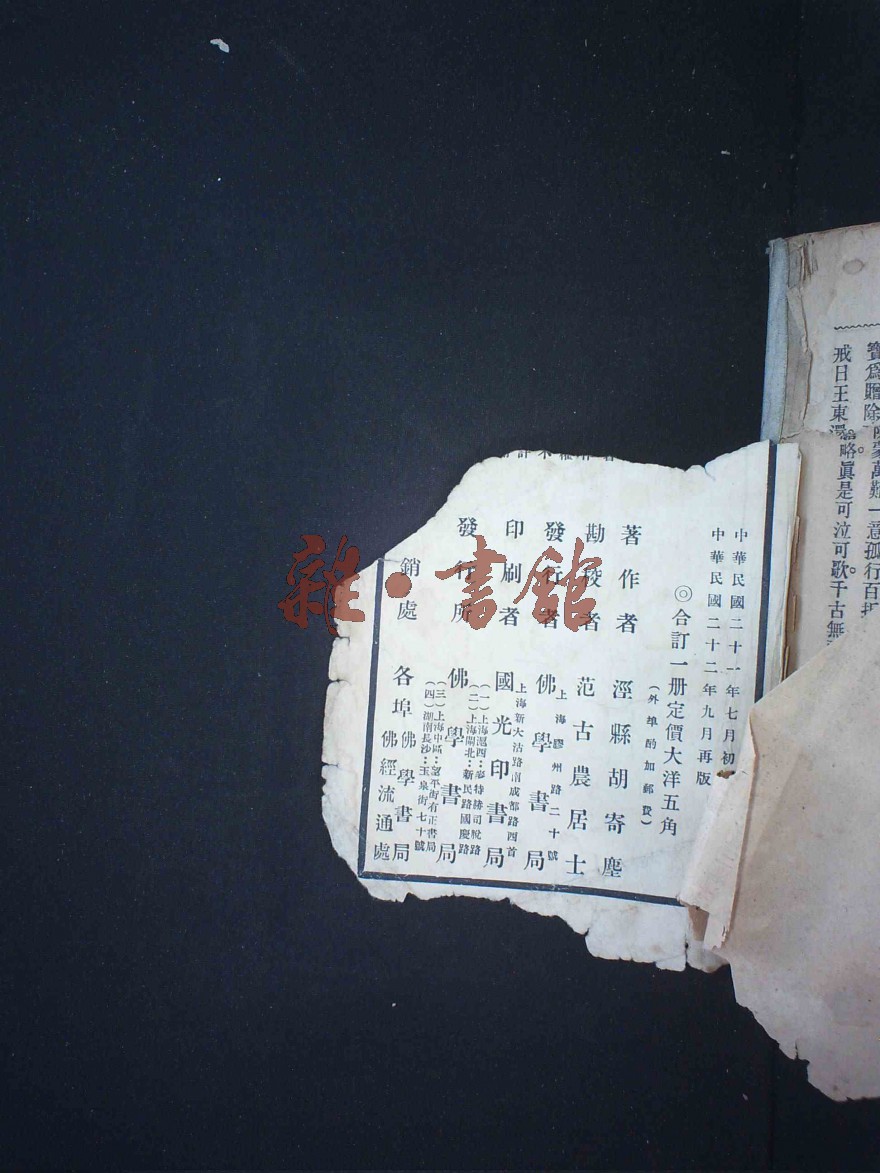 寶爲贈除
戒日王東還
蒙萬難一意孤行百折
略。眞是可泣可歌。千古無
中華民國二十一年七月初
中華民國二十二年九月再版
◎合訂一册定價大洋五角
(外埠酌加郵費)
著作者 涇縣胡寄塵
勘校者 范古農居士
發行者 佛學書局
上海膠州路二十號
印刷者 國光印書局
上海新大沽路南成都路西首
發行所 佛學書局
(一)上海滬西:麥特赫司脫路
(二)上海閘北:新民路國慶路
(三)上海中區:望平街有正書局
(四)湖南長沙:玉泉街七十號
銷處 各埠佛學書局
佛經流通處
雜·書館